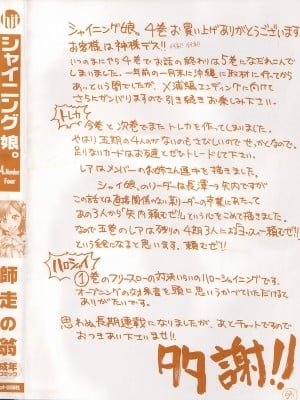 シャイニング娘。
4.Number
Four
師走の翁
成年
コミック
シャイニング娘。4巻お買い上げありがとうございます
お客様は神様デス!!
いつのまにやら今巻でお話の終わりは5巻になだれこんで
しまいました。一年前の一月末に沖縄に取材に行ってから
あっという間でしたが、
さらにガンバリますので引き続きお楽しみ下さい。
トレカ
今巻と次巻でまたトレカを作ってしまいました。
やはり五期の4人のが
足りないカードはお友達とぜひトレードして下さい。
レアはメンバーのお姉さん達中を描きました。
シャイ娘。のリーダーは長澤→矢内ですが
この話とは直接関係ない某リーダーの卒業にあたって
あの3人から"矢内頼むぜ!!"という心をこめて描きました。
なので五巻のレアは残りの4期3人に
という絵になると思います。頼むぜ!!
ハロシャイ
①巻のフリースローの対決いらいのハローシャイニングです。
オープニングの対決者を頭に思いうかべていただけると
ありがたいです。
思わぬ長期連載になりましたが、あとチョットですので
おつきあい下さいませ!!
多謝!!